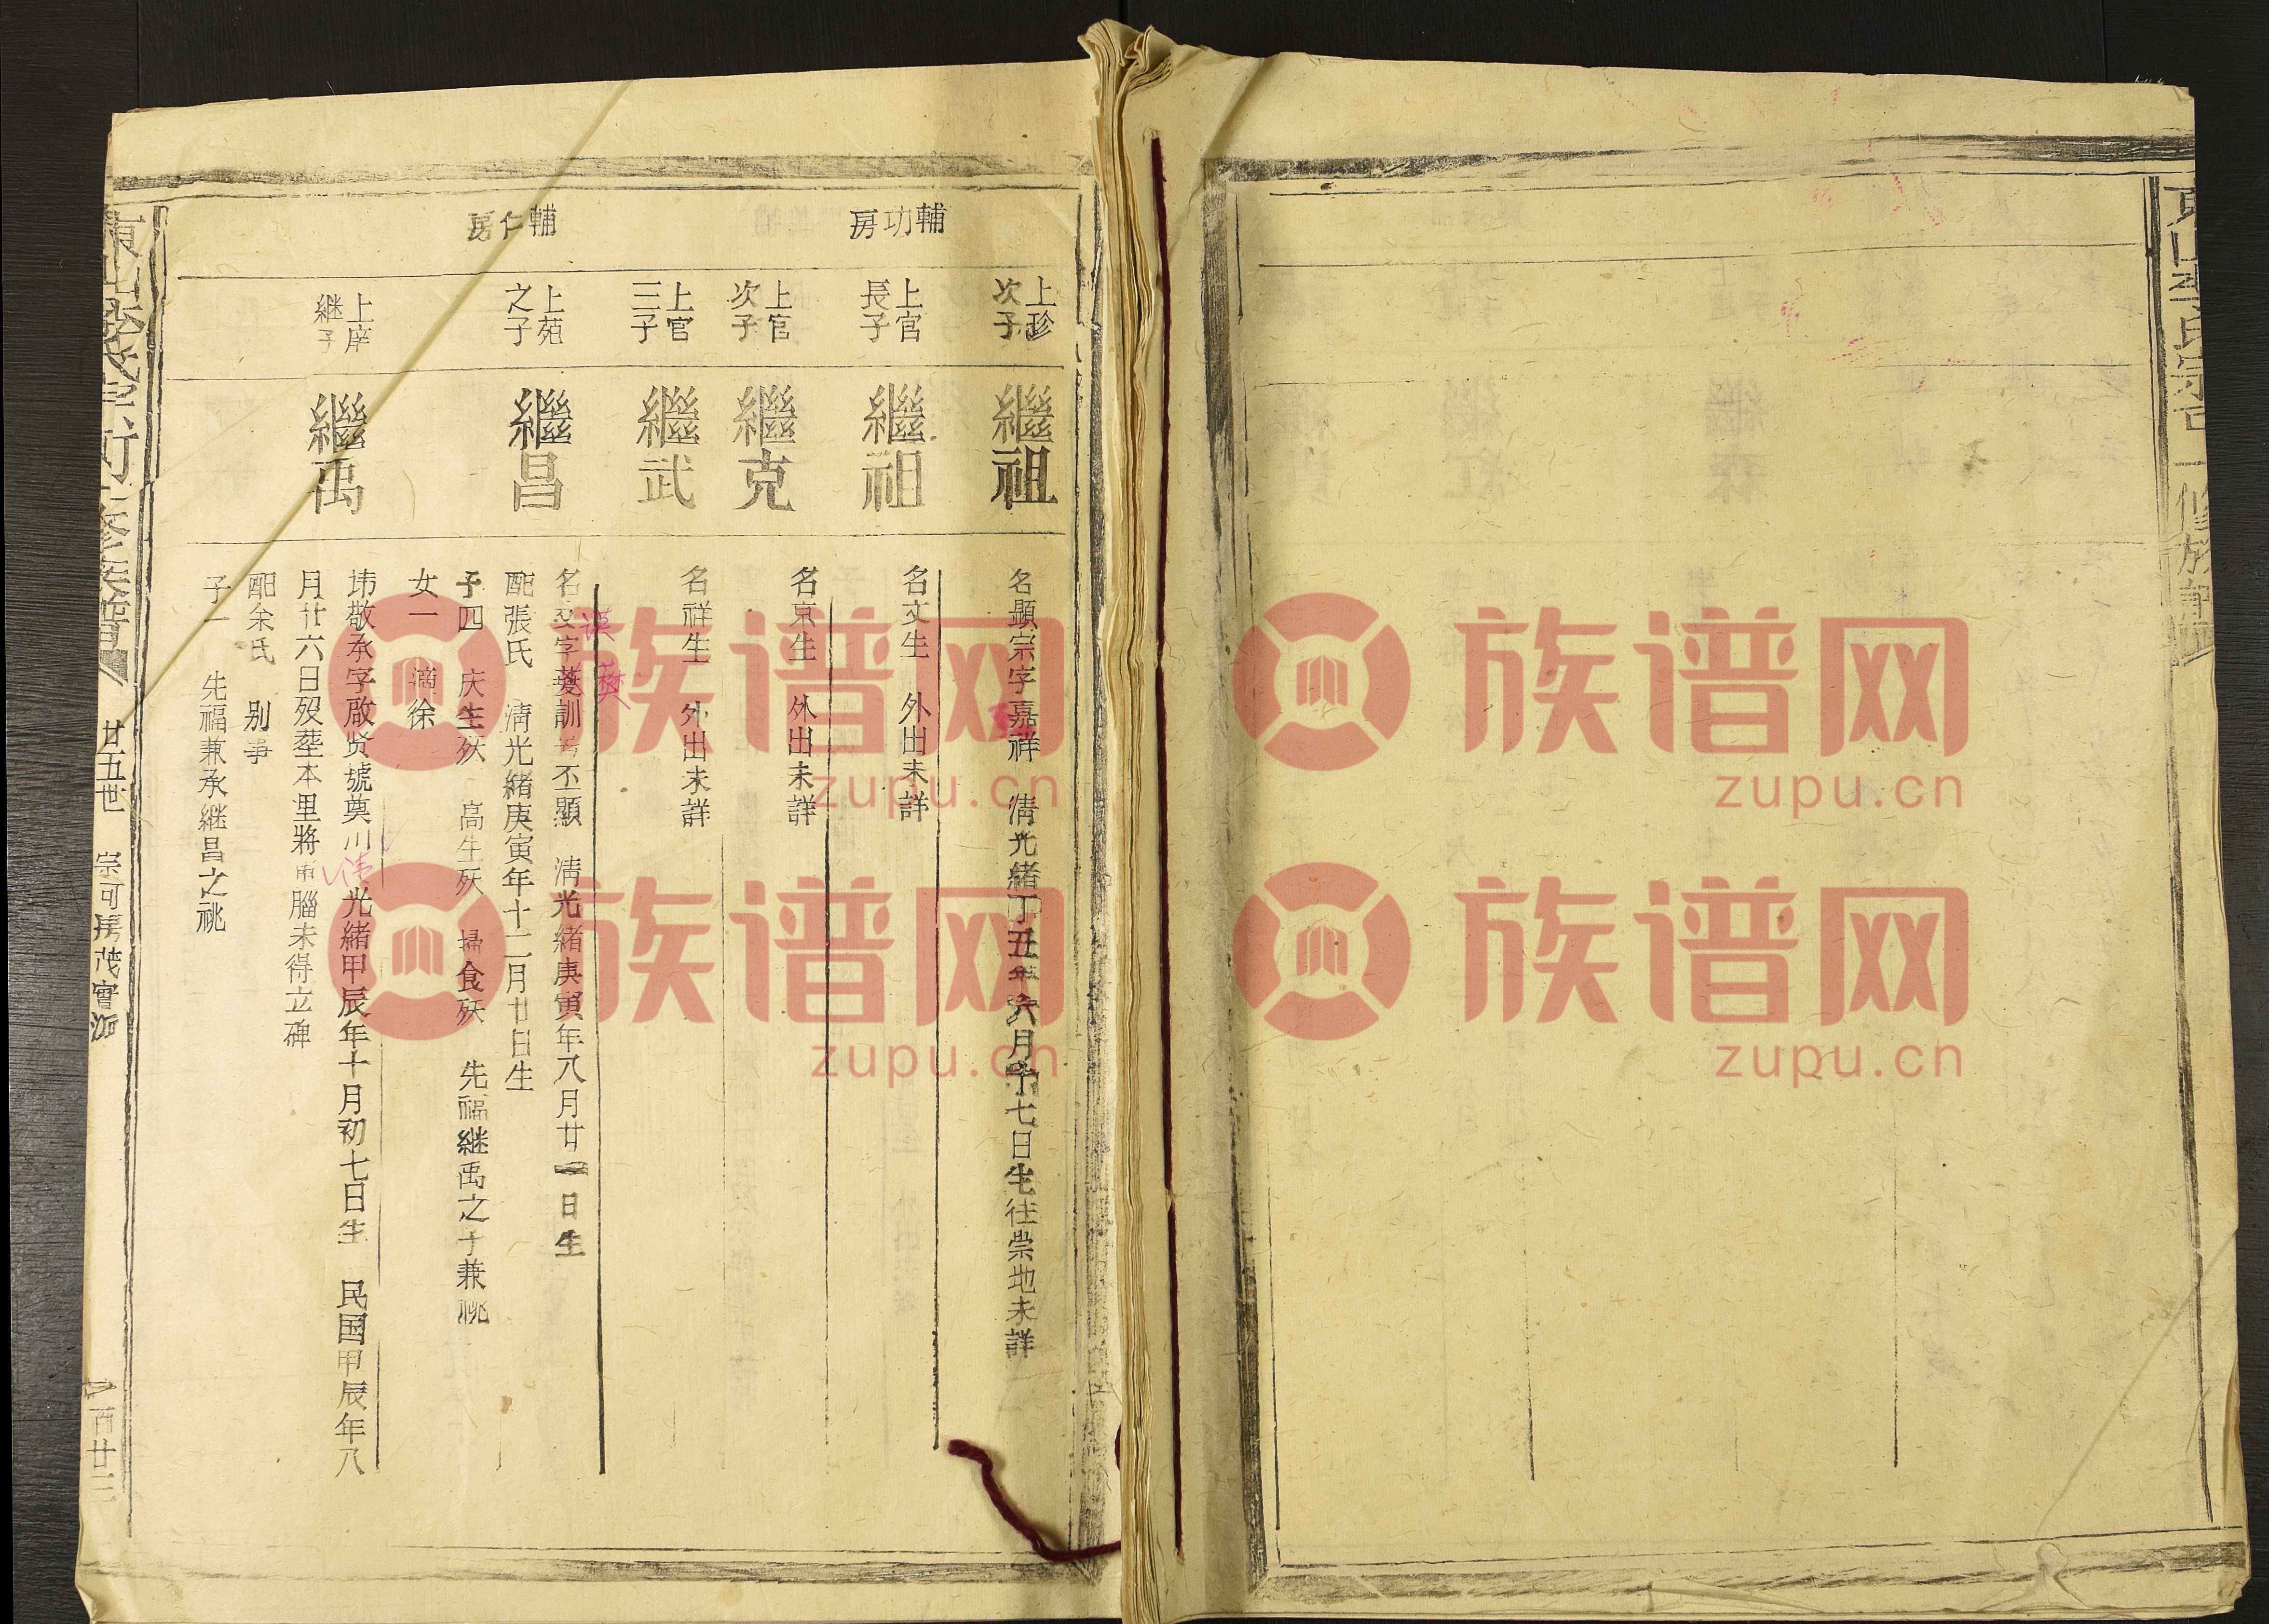 輔功房
輔仁房
上珍次子
繼祖
名顯宗字嘉祥 清光緒丁丑年六月十七日生往崇地未詳
上官長子
繼祖
名文生 外出未詳
上官次子
繼克
名京生 外出未詳
上官三子
繼武
名祥生 外出未詳
上苑之子
繼昌
名文字夔訓 丕顯 清光緒庚寅年八月廿一日生
配張氏 清光緒庚寅年十二月廿日生
子四 庆生殀 高生殀 掃食殀 先福继禹之子兼祧
女一 適徐
上庠继子
繼禹
敬承字啟贤號奠川 清光緒甲辰年十月初七日生 民国甲辰年八
月廿六日殁塟本里將 腦未得立碑
配余氏 别爭
子一 先福兼承继昌之祧
廿五世 宗可房茂實派
百廿三
族谱网
zupu.cn
族谱网
zupu.cn
族谱网
zupu.cn
族谱网
zupu.cn